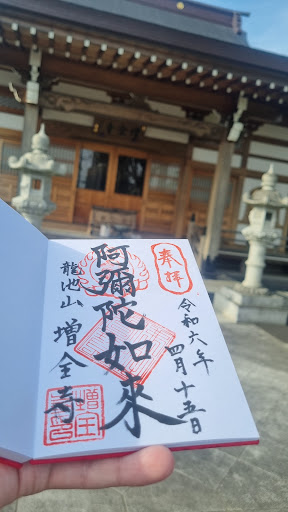 奉拝
令和六年
四月十五日
阿彌陀如來
龍池山
増全寺